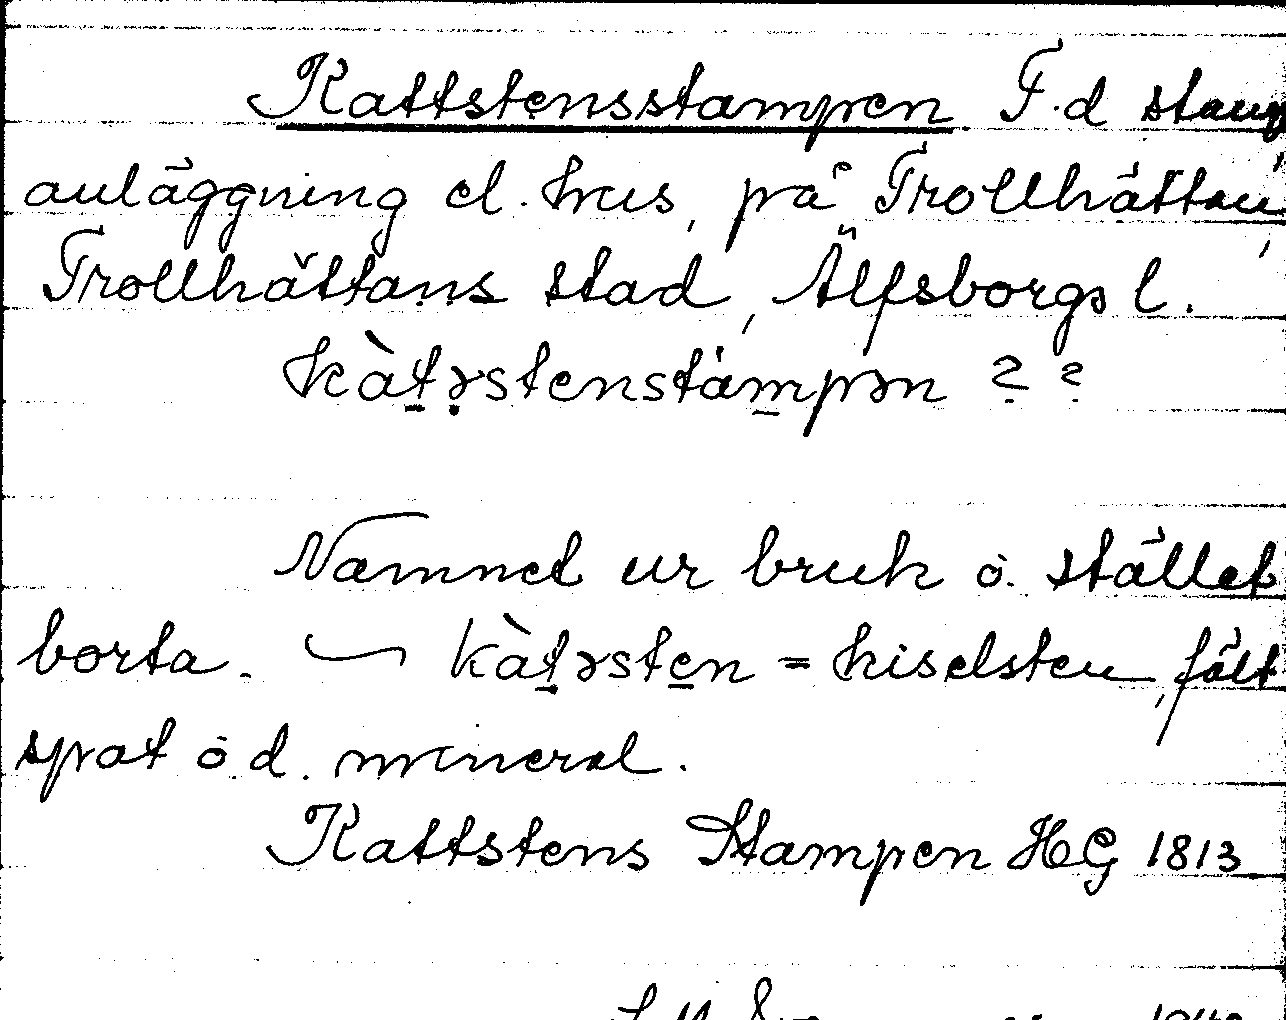 Kattstensstampen F.d stamp
anläggning el. hus, på Trollhättan,
Trollhättans stad, Älfsborgs l.
kàt̠ə̣stenstàm̠pən ? ?
Namnet ur bruk o. stället
borta. kàt̠əste̠n = kiselsten, fält
spat o.d. mineral.
Kattstens Stampen HG 1813